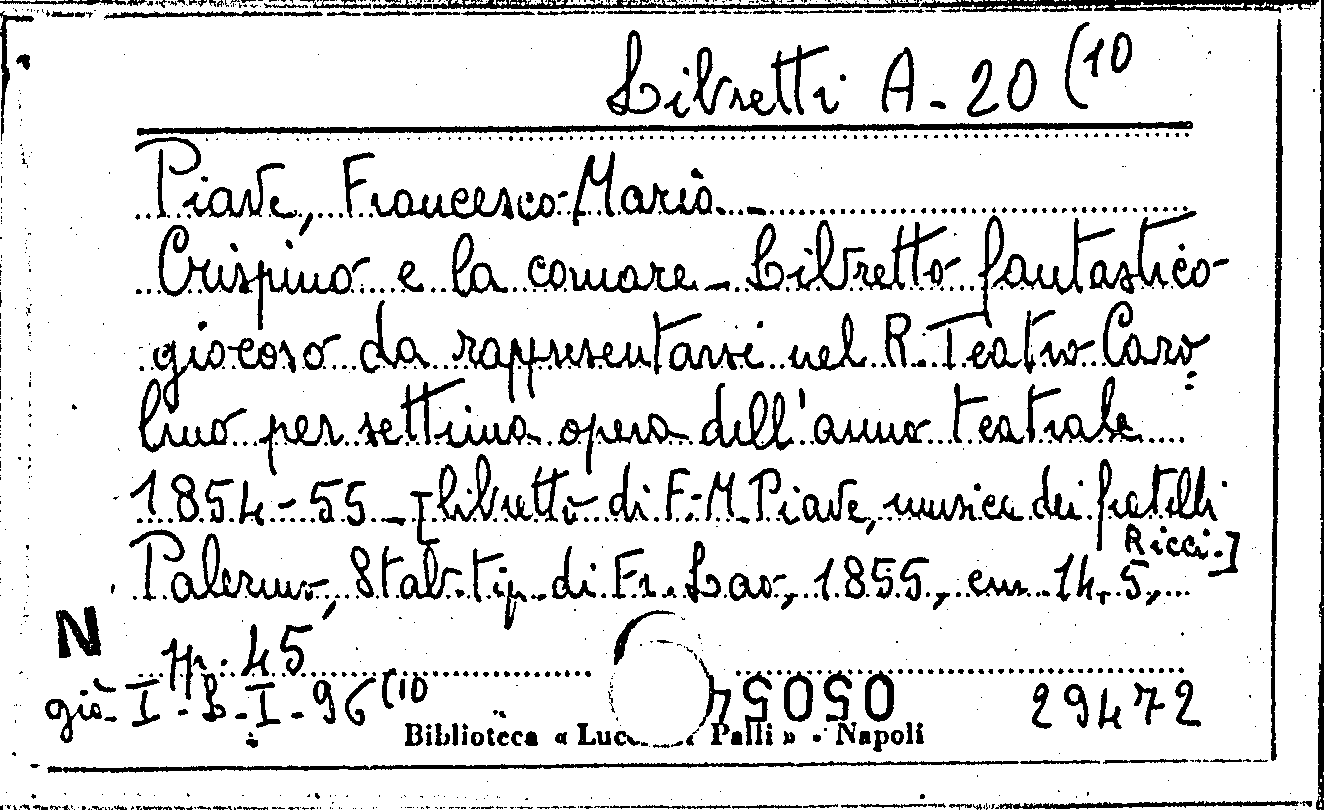 Libretti A-20 (10
Piave, Francesco Maria -
Crispino e la comare - Libretto fantastico-
giocoso da rappresentarsi nel R. Teatro Caro=
lino per settima opera dell'anno teatrale
1854-55 - [libretto di F. M. Piave, musica dei fratelli
Ricci.]
Palermo, Stab. tip. di Fr. Lao, 1855, cm 14,5,
pp. 45
N
già I-B-I-96 (10
29472
Biblioteca « Palli » - Napoli